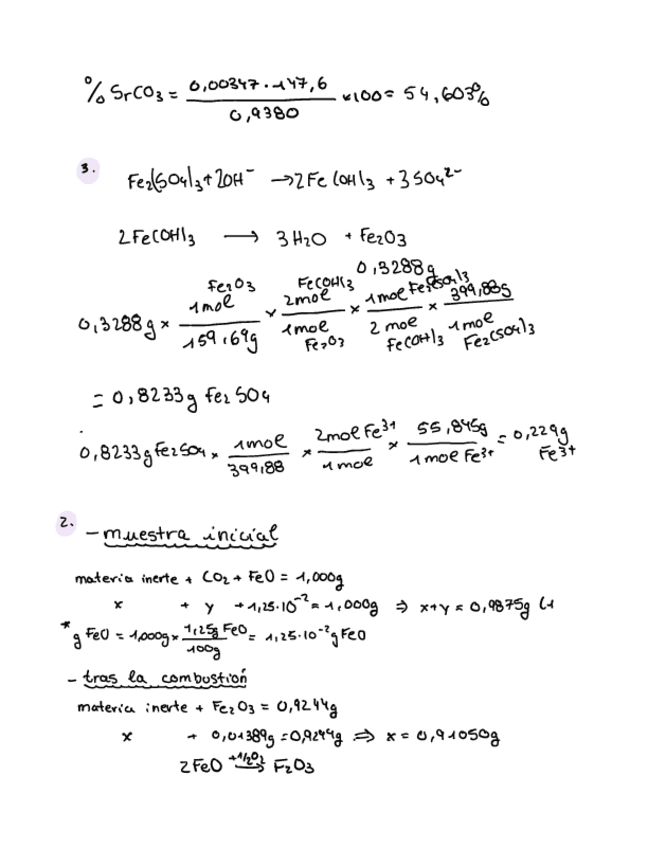 % SrCO3 = 0,00347 · 147,6 / 0,9380 ×100 = 54,603%
3.
Fe2(SO4)3 + 2OH⁻ → 2Fe(OH)3 + 3SO4²⁻
2Fe(OH)3 → 3H2O + Fe2O3
0,3288g
0,3288g × 1mol Fe2O3 / 159,69g × 2mol Fe(OH)3 / 1mol Fe2O3 × 1mol Fe2(SO4)3 / 2mol Fe(OH)3 × 399,88g / 1mol Fe2(SO4)3
= 0,8233g Fe2SO4
0,8233g Fe2SO4 × 1mol / 399,88 × 2mol Fe³⁺ / 1mol × 55,845g / 1mol Fe³⁺ = 0,229g Fe³⁺
2. - muestra inicial
materia inerte + CO2 + FeO = 1,000g
x + y + 1,25·10⁻² = 1,000g ⇒ x+y = 0,9875g (1
* g FeO = 1,000g × 1,25g FeO / 100g = 1,25·10⁻² g FeO
- tras la combustión
materia inerte + Fe2O3 = 0,9244g
x + 0,01389g = 0,9244g ⇒ x = 0,91050g
2FeO +1/2O2 → F2O3